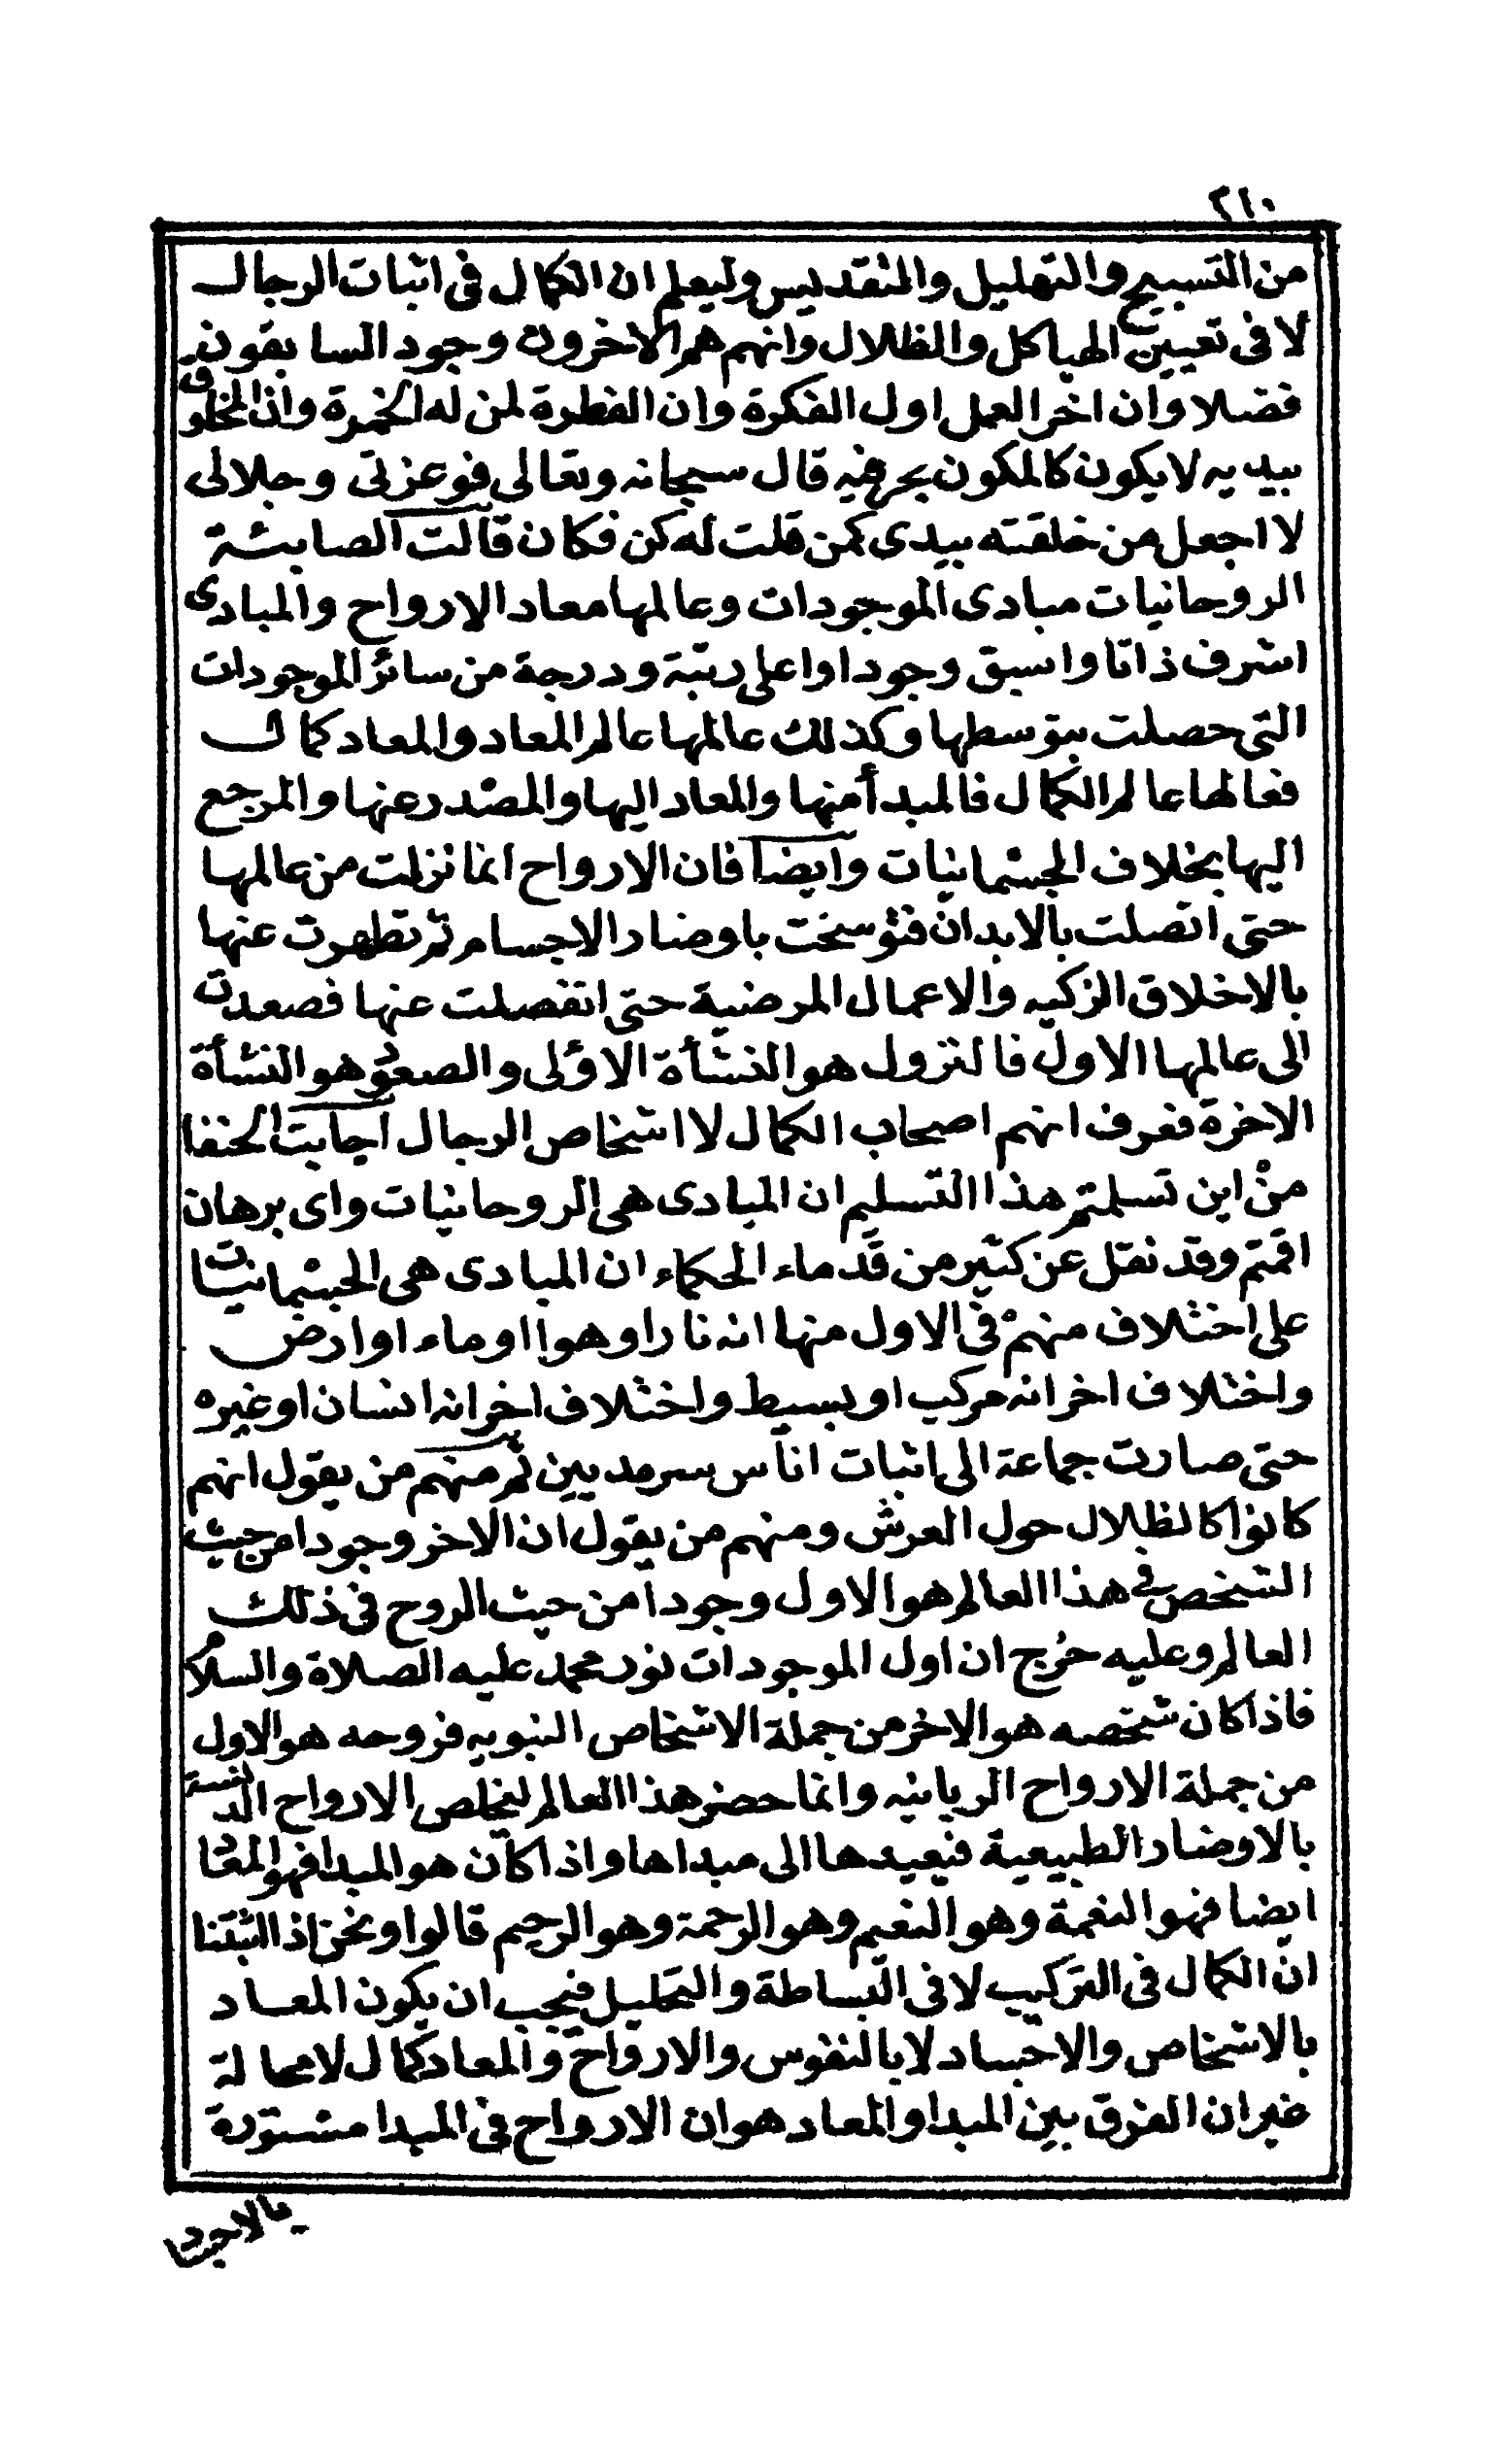 ٢١٠
من التسبيح والتهليل والتقديس وليعلم ان الكمال فى اثبات الرجال
لا فى تعيين الهياكل والظلال وانهم هم الاخرون وجود السابقون
فضلا وان اخر العمل اول الفكرة وان الفطرة لمن له الخمرة وان المخلوق
بيديه لا يكون كالمكون بحرفيه قال سبحانه وتعالى فوعزتى وجلالى
لا اجعل من خلقته بيدى كمن قلت له كن فكان قالت الصابئة
الروحانيات مبادى الموجودات وعالمها معاد الارواح والمبادى
اشرف ذاتا واسبق وجودا واعلى رتبة ودرجة من سائر الموجودات
التى حصلت بتوسطها وكذلك عالمها عالم المعاد والمعاد كمال
فعالمها عالم الكمال فالمبدأ منها والمعاد اليها والمصدر عنها والمرجع
اليها بخلاف الجسمانيات وايضا فان الارواح انما نزلت من عالمها
حتى اتصلت بالابدان فتوسخت باوضار الاجسام ثم تطهرت عنها
بالاخلاق الزكيه والاعمال المرضية حتى انفصلت عنها فصعدت
الى عالمها الاول فالنزول هو النشأة الاولى والصعود هو النشأة
الاخرة فعرف انهم اصحاب الكمال لا اشخاص الرجال اجابت الحنفا
من اين تسلمتم هذا التسليم ان المبادى هى الروحانيات واى برهان
اقمتم وقد نقل عن كثير من قدماء الحكماء ان المبادى هى الجسمانيات
على اختلاف منهم فى الاول منها انه نار او هوا او ماء او ارض
واختلاف اخر انه مركب او بسيط واختلاف اخر انه انسان او غيره
حتى صارت جماعة الى اثبات اناس سرمديين ثم منهم من يقول انهم
كانوا كالظلال حول العرش ومنهم من يقول ان الاخر وجودا من حيث
الشخص فى هذا العالم هو الاول وجودا من حيث الروح فى ذلك
العالم وعليه خرج ان اول الموجودات نور محمد عليه الصلاة والسلام
فاذا كان شخصه هو الاخر من جملة الاشخاص النبويه فروحه هو الاول
من جملة الارواح الربانيه وانما حضر هذا العالم ليخلص الارواح الدنسة
بالاوضار الطبيعية فيعيدها الى مبداها واذا كان هو المبدا فهو المعاد
ايضا فهو النعمة وهو النعيم وهو الرحمة وهو الرحيم قالوا ونحن اذا اثبتنا
ان الكمال فى التركيب لا فى البساطة والتحليل فيجب ان يكون المعاد
بالاشخاص والاجساد لا بالنفوس والارواح والمعاد كمال لا محالة
غير ان الفرق بين المبدا والمعاد هو ان الارواح فى المبدا مستورة
بالاجساد